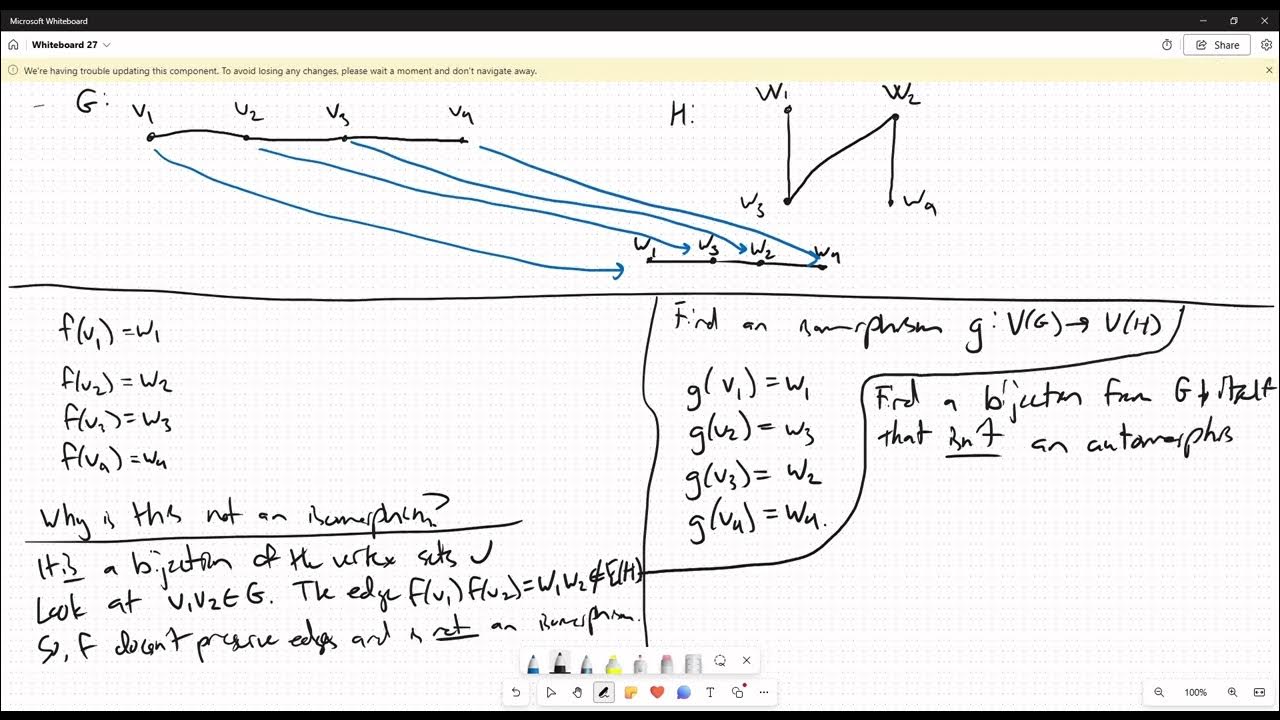 Microsoft Whiteboard
Whiteboard 27
Share
We're having trouble updating this component. To avoid losing any changes, please wait a moment and don't navigate away.
G:
v1 v2 v3 v4
H:
w1 w2
w3 w4
w1 w3 w2 w4
f(v1) = w1
f(v2) = w2
f(v3) = w3
f(v4) = w4
Why is this not an isomorphism?
It is a bijection of the vertex sets ✓
Look at v1v2 ∈ G. The edge f(v1)f(v2) = w1w2 ∉ E(H)
So, f doesn't preserve edges and is not an isomorphism.
Find an isomorphism g: V(G) → V(H)
g(v1) = w1
g(v2) = w3
g(v3) = w2
g(v4) = w4.
Find a bijection from G to itself
that isn't an automorphis
100%